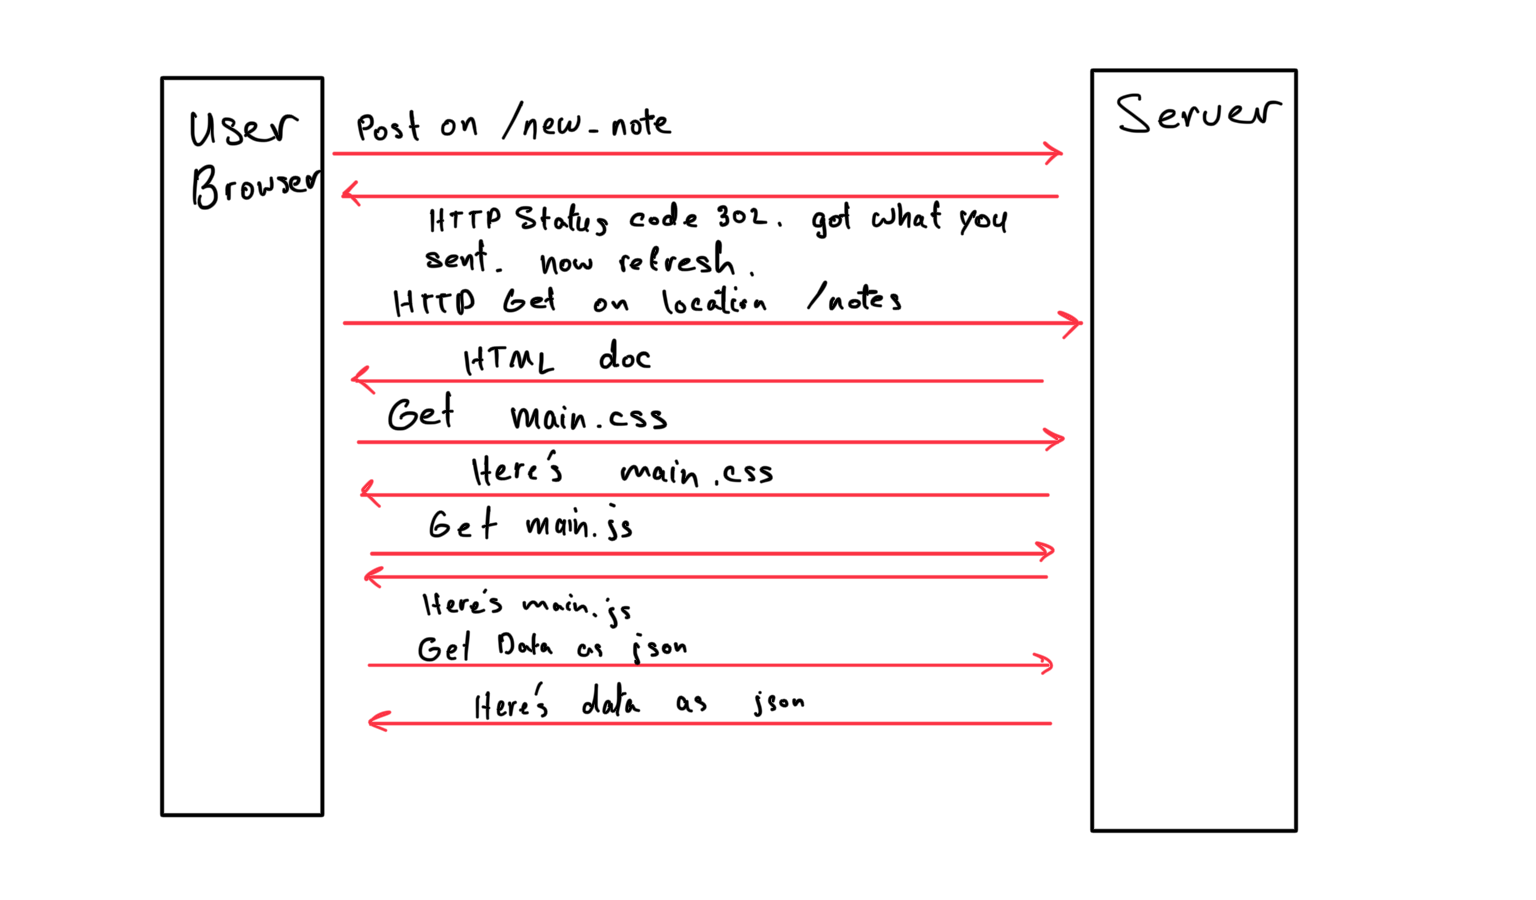 User
Browser
Server
Post on /new_note
HTTP Status code 302. got what you
sent. now refresh.
HTTP Get on location /notes
HTML doc
Get main.css
Here's main.css
Get main.js
Here's main.js
Get Data as json
Here's data as json